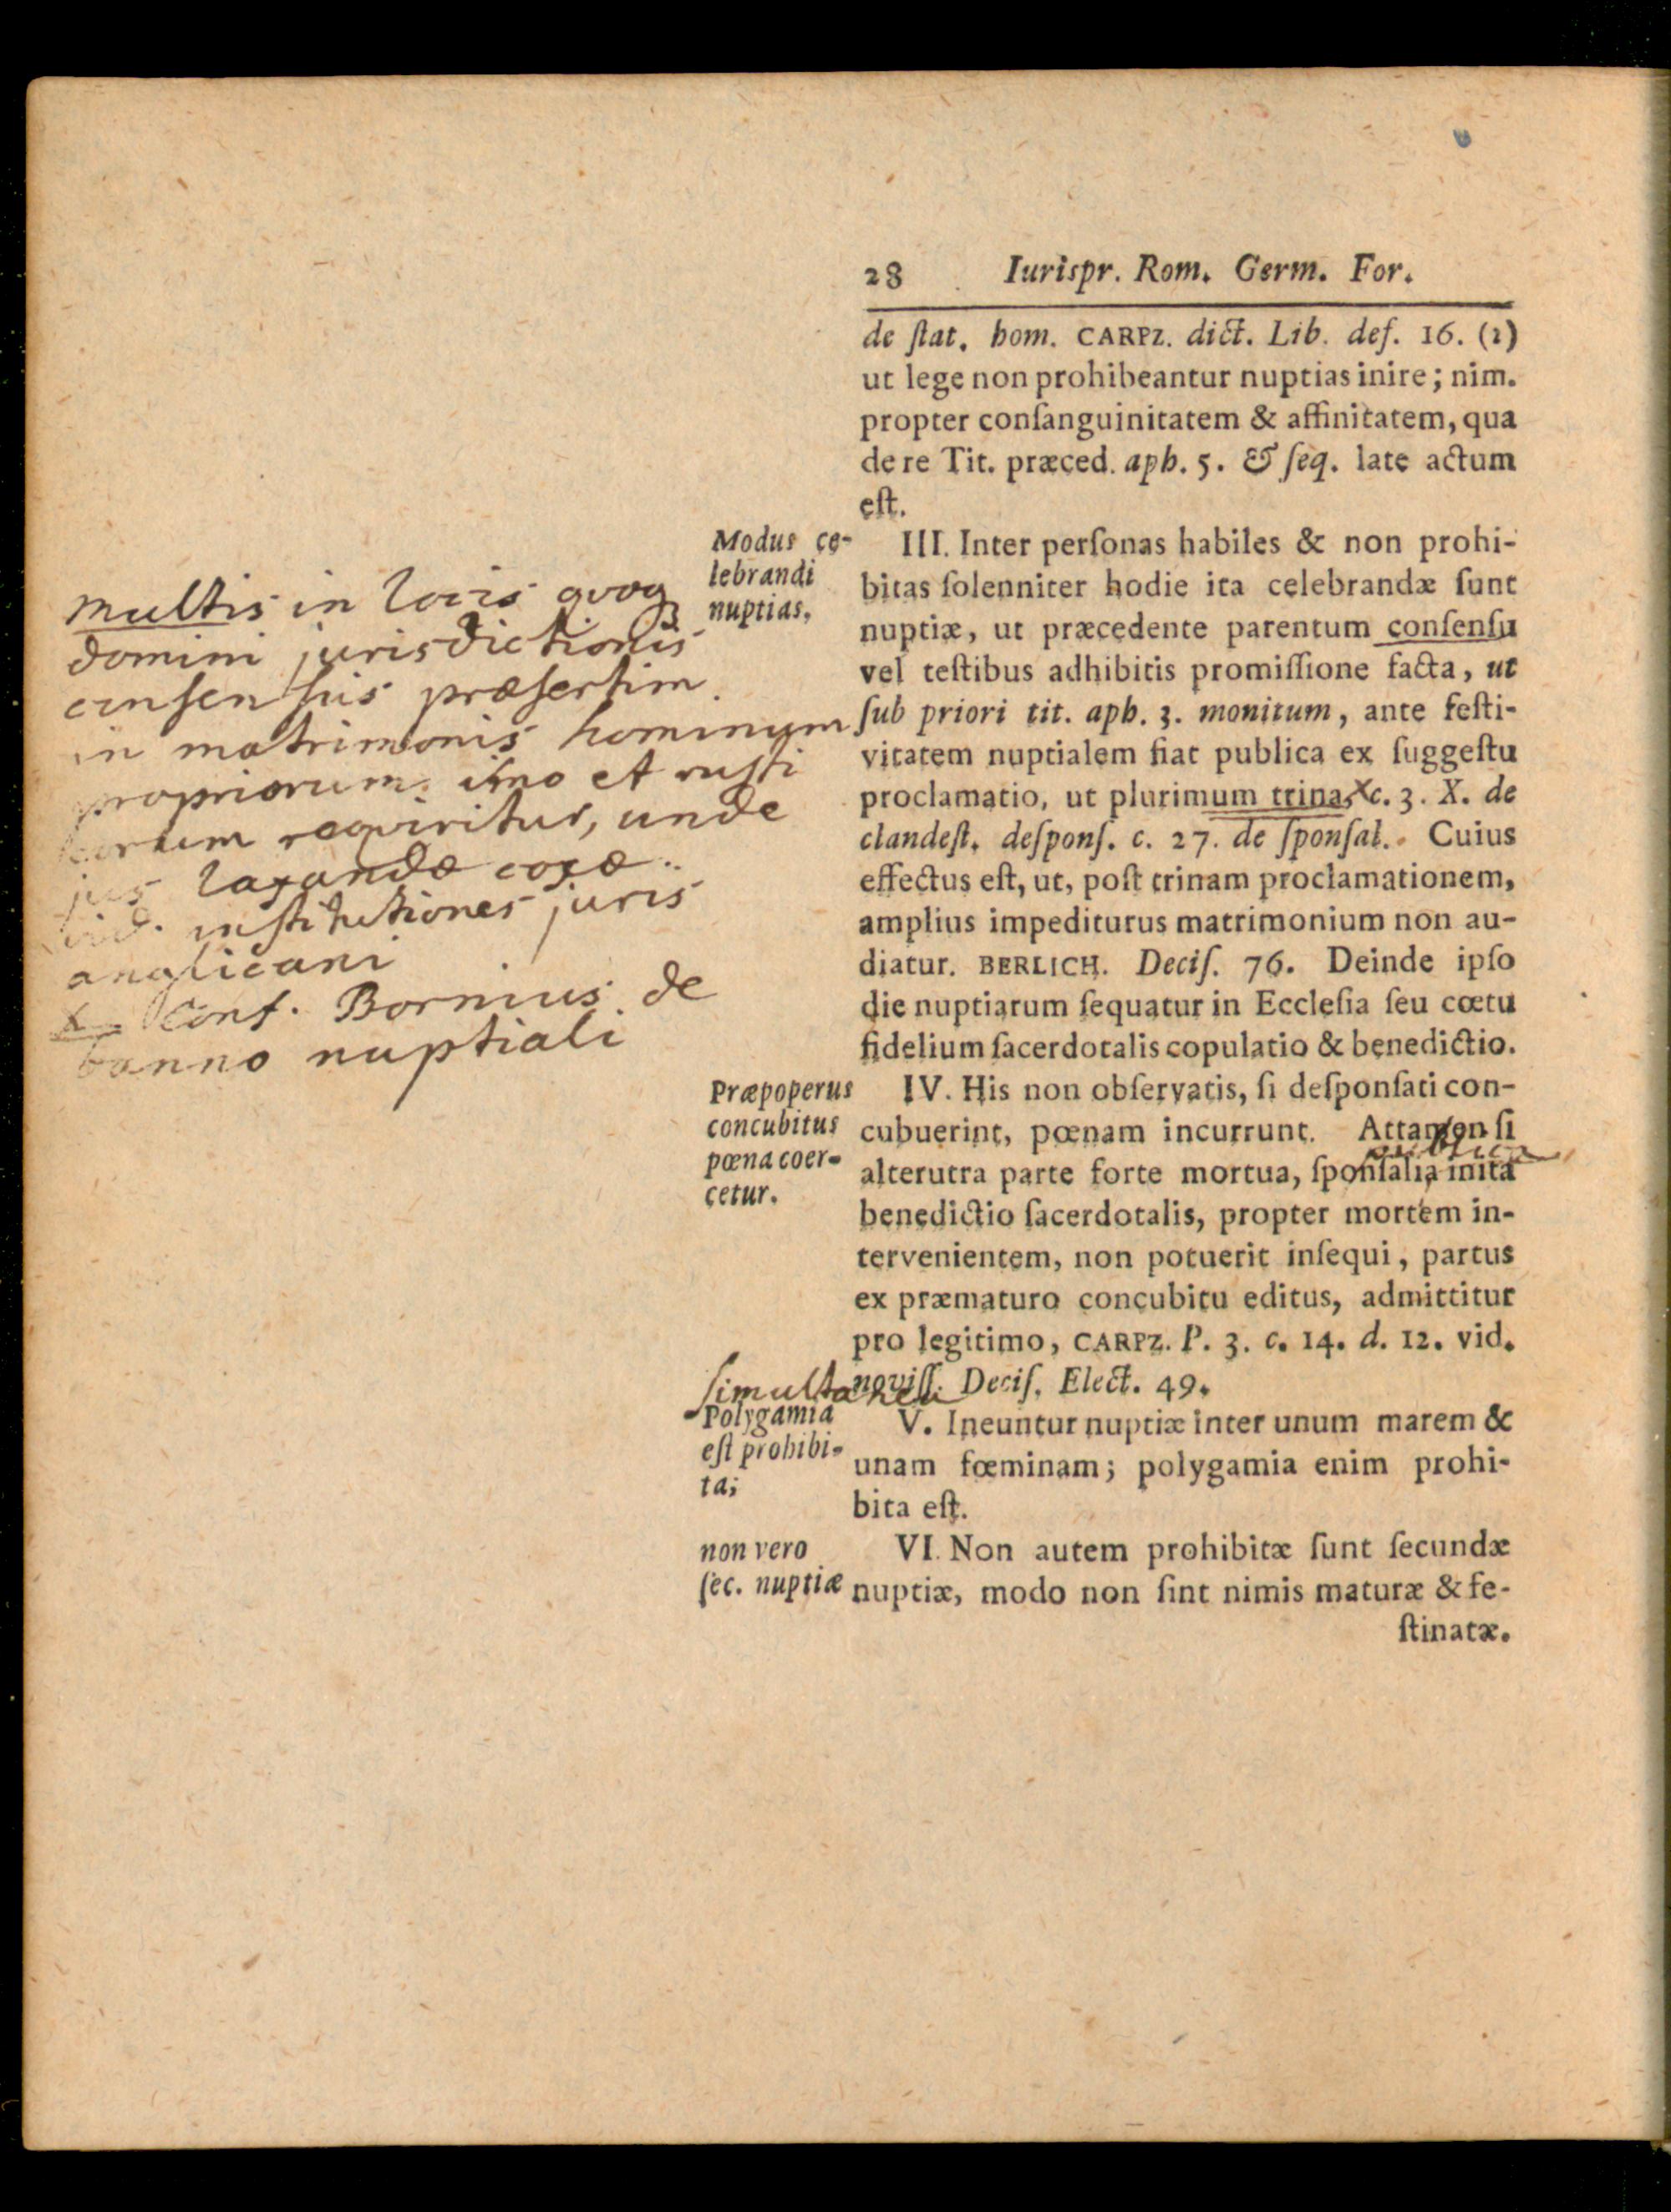 28 Iurispr. Rom. Germ. For.
de ſtat. hom. CARPZ. dict. Lib. def. 16. (2)
ut lege non prohibeantur nuptias inire; nim.
propter conſanguinitatem & affinitatem, qua
de re Tit. præced. aph. 5. & ſeq. late actum
eſt.
Modus ce-
lebrandi
nuptias.
III. Inter perſonas habiles & non prohi-
bitas ſolenniter hodie ita celebrandæ ſunt
nuptiæ, ut præcedente parentum conſenſu
vel teſtibus adhibitis promiſſione facta, ut
ſub priori tit. aph. 3. monitum, ante feſti-
vitatem nuptialem fiat publica ex ſuggeſtu
proclamatio, ut plurimum trina, x c. 3. X. de
clandeſt. deſponſ. c. 27. de ſponſal. Cuius
effectus eſt, ut, poſt trinam proclamationem,
amplius impediturus matrimonium non au-
diatur. BERLICH. Deciſ. 76. Deinde ipſo
die nuptiarum ſequatur in Eccleſia ſeu cœtu
fidelium ſacerdotalis copulatio & benedictio.
multis in locis quoq
domini jurisdictionis
conſenſus præſertim
in matrimonis hominum
propriorum imo et ruſti
corum requiritur, unde
jus laxandæ coxæ.
vid. inſtitutiones juris
anglicani
x Conf. Bornius de
banno nuptiali
Præpoperus
concubitus
pœna coer-
cetur.
IV. His non obſervatis, ſi deſponſati con-
cubuerint, pœnam incurrunt. Attamen ſi
publica
alterutra parte forte mortua, ſponſalia inita
benedictio ſacerdotalis, propter mortem in-
tervenientem, non potuerit inſequi, partus
ex præmaturo concubitu editus, admittitur
pro legitimo, CARPZ. P. 3. c. 14. d. 12. vid.
noviſſ. Deciſ. Elect. 49.
ſimultanea
Polygamia
eſt prohibi-
ta;
V. Ineuntur nuptiæ inter unum marem &
unam fœminam; polygamia enim prohi-
bita eſt.
non vero
ſec. nuptiæ
VI. Non autem prohibitæ ſunt ſecundæ
nuptiæ, modo non ſint nimis maturæ & fe-
ſtinatæ.